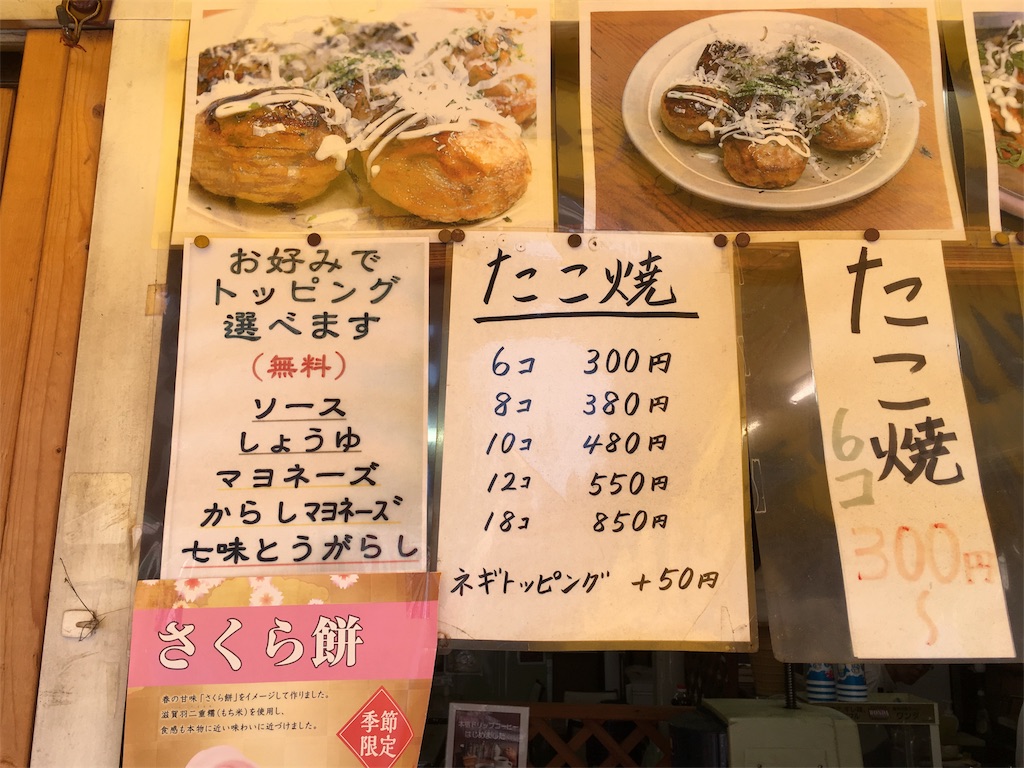 お好みで
トッピング
選べます
(無料)
ソース
しょうゆ
マヨネーズ
からしマヨネーズ
七味とうがらし
たこ焼
6コ 300円
8コ 380円
10コ 480円
12コ 550円
18コ 850円
ネギトッピング +50円
たこ焼
6コ
300円
〜
さくら餅
春の甘味「さくら餅」をイメージして作りました。
滋賀羽二重糯(もち米)を使用し、
食感も本物に近い味わいに近づけました。
季節
限定
本格ドリップコーヒー
はじめました